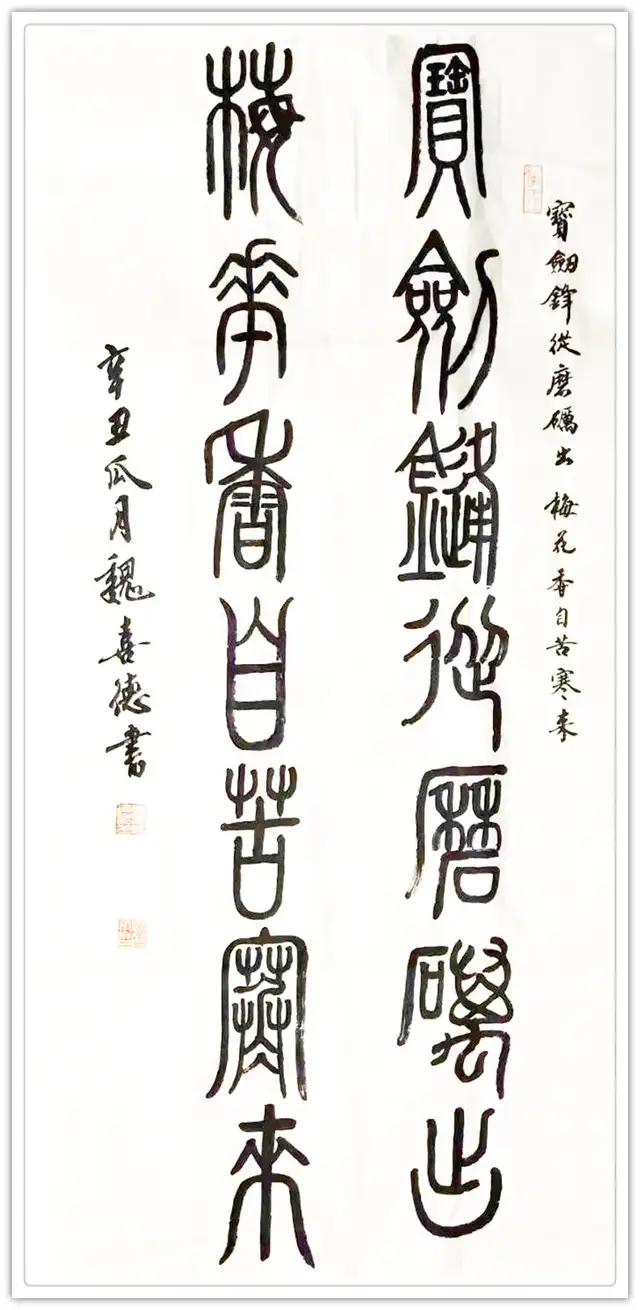 寶劍鋒從磨礪出
梅花香自苦寒來
寶劒鋒從磨礪出 梅花香自苦寒来
辛丑瓜月魏喜德書